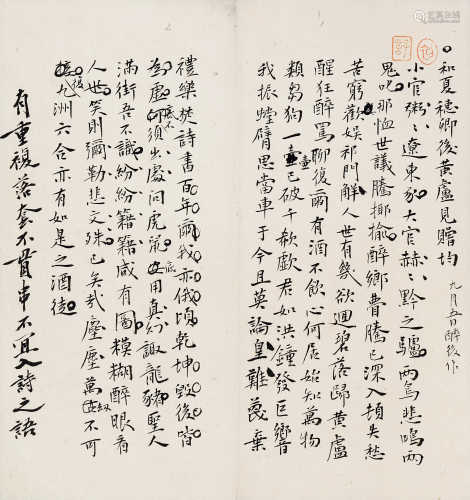 和夏穗卿後黃盧見贈均
九月五日醉後作
小官粥粥遼東豕大官赫赫黔之驢兩鳥悲鳴兩
鬼叱那恤世議騰揶揄醉鄉瞢騰已深入頓失愁
苦窮歡娛祁門解人世有幾欲通碧落歸黃盧
醒狂醉罵聊復爾有酒不飲心何居始知萬物
類芻狗一壺已破千欷歔君如洪鐘發巨響
我振螳臂思當車于今且莫論皇雞蔑棄
禮樂焚詩書百年爾我亦俄頃乾坤毀後皆
為虛何須出處問虎鼠底用真幻諏龍豬聖人
滿街吾不識紛紛籍籍咸有圖糢糊醉眼看
人世笑則彌勒悲文殊已矣哉塵塵萬劫不可
後九洲六合亦有如是之酒徒
有重複落套不貫串不宜入詩之語